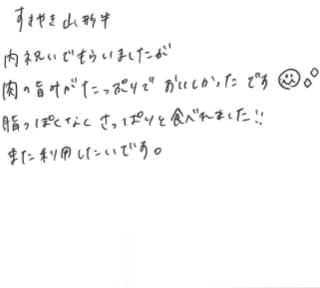 すきやき山形牛
内祝いでもらいましたが
肉の旨味がたっぷりで おいしかった です
脂っぽくなく さっぱりと食べれました!!
また利用したいです。